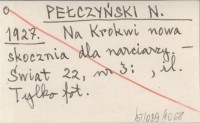 PEŁCZYŃSKI N.
1927. Na Krokwi nowa
skocznia dla narciarzy. –
Świat 22, nr 3: , il.
Tylko fot.